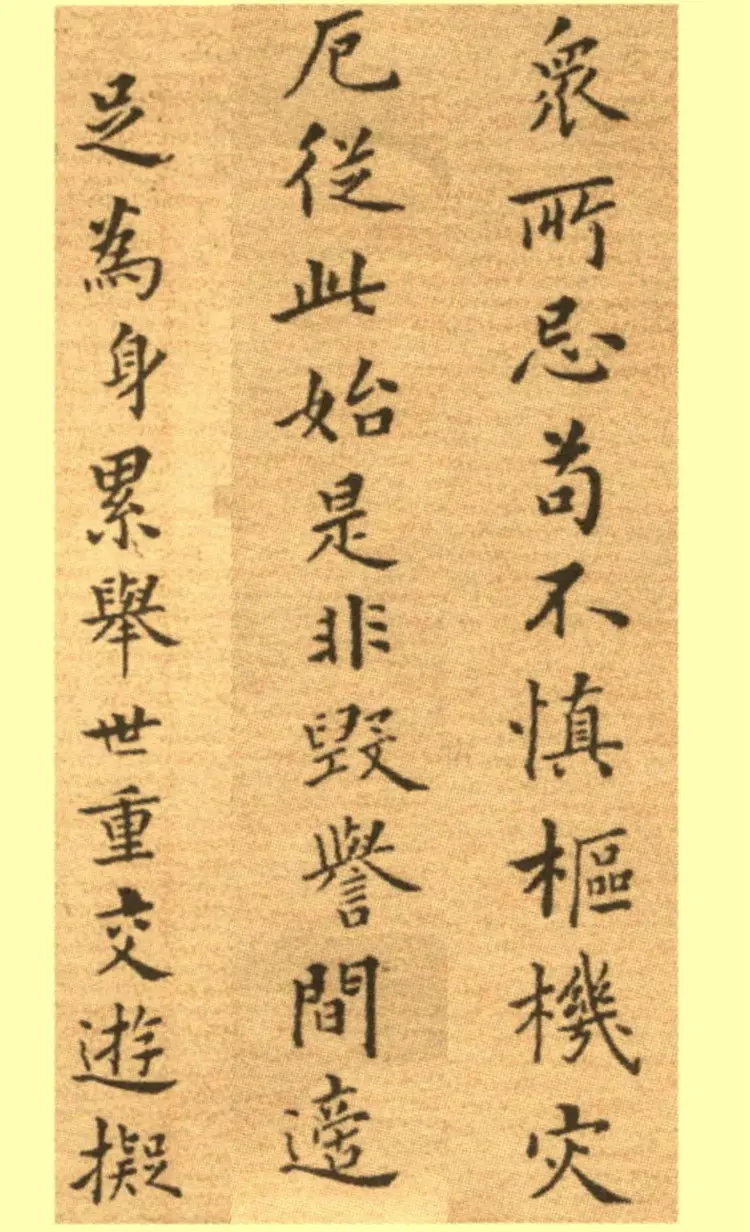 眾所忌苟不慎樞機灾
厄從此始是非毀譽間適
足為身累舉世重交遊擬